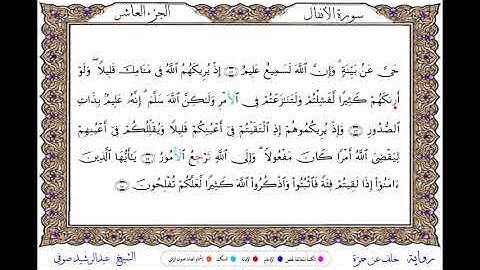 سورة الأنفال
الجزء العاشر
حَىَّ عَنۢ بَيِّنَةٍۗ وَإِنَّ ٱللَّهَ لَسَمِيعٌ عَلِيمٌ ۝ إِذۡ يُرِيكَهُمُ ٱللَّهُ فِى مَنَامِكَ قَلِيلًاۖ وَلَوۡ
أَرَىٰكَهُمۡ كَثِيرًا لَّفَشِلۡتُمۡ وَلَتَنَٰزَعۡتُمۡ فِى ٱلۡأَمۡرِ وَلَٰكِنَّ ٱللَّهَ سَلَّمَۗ إِنَّهُۥ عَلِيمُۢ بِذَاتِ
ٱلصُّدُورِ ۝ وَإِذۡ يُرِيكُمُوهُمۡ إِذِ ٱلۡتَقَيۡتُمۡ فِىٓ أَعۡيُنِكُمۡ قَلِيلًا وَيُقَلِّلُكُمۡ فِىٓ أَعۡيُنِهِمۡ
لِيَقۡضِىَ ٱللَّهُ أَمۡرًا كَانَ مَفۡعُولًاۗ وَإِلَى ٱللَّهِ تَرۡجِعُ ٱلۡأُمُورُ ۝ يَٰٓأَيُّهَا ٱلَّذِينَ
ءَامَنُوٓاْ إِذَا لَقِيتُمۡ فِئَةً فَٱثۡبُتُواْ وَٱذۡكُرُواْ ٱللَّهَ كَثِيرًا لَّعَلَّكُمۡ تُفۡلِحُونَ ۝
رواية خلف عن حمزة
الشيخ عبدالرشيد صوفي